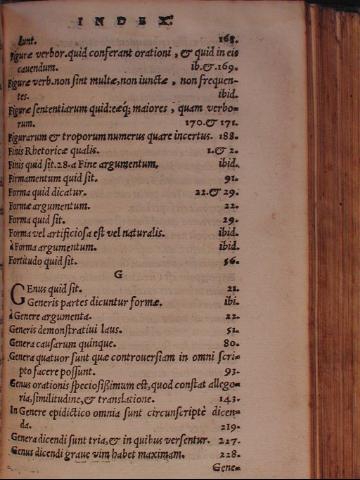 INDEX.
sunt. 168.
Figuræ verbor. quid conferant orationi, & quid in eis
cauendum. ib. & 169.
Figuræ verb. non sint multæ, non iunctæ, non frequen-
tes. ibid.
Figuræ sententiarum quid: eæq; maiores, quam verbo-
rum. 170. & 171.
Figurarum & troporum numerus quare incertus. 188.
Finis Rhetoricæ qualis. 1. & 2.
Finis quid sit. 28. a Fine argumentum. ibid.
Firmamentum quid sit. 91.
Forma quid dicatur. 22. & 29.
Formæ argumentum. 22.
Forma quid sit. 29.
Forma vel artificiosa est vel naturalis. ibid.
à Forma argumentum. ibid.
Fortitudo quid sit. 56.
G
GEnus quid sit. 21.
Generis partes dicuntur formæ. ibi.
à Genere argumenta. 22.
Generis demonstratiui laus. 51.
Genera causarum quinque. 80.
Genera quatuor sunt quæ controuersiam in omni scri-
pto facere possunt. 93.
Genus orationis speciosissimum est, quod constat allego-
ria, similitudine, & translatione. 143.
In Genere epidictico omnia sunt circunscriptè dicen-
da. 219.
Genera dicendi sunt tria, & in quibus versentur. 227.
Genus dicendi graue vim habet maximam. 228.
Gene=